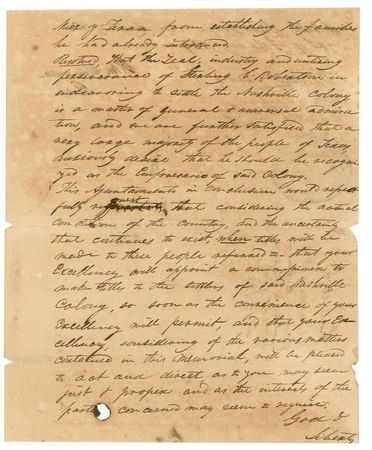 of Texas from establishing the families
he had already introduced.
Resolved, that the Zeal, industry and untiring
perseverance of Sterling C Robertson in
endeavoring to settle the Nashville Colony
is a matter of general & universal admira
tion, and we are further satisfied that a
very large majority of the people of Texas
anxiously desire that he should be recogni
zed as the Empresario of said Colony.
This Ayuntamiento in conclusion would respect
fully that considering the actual
condition of the country, and the uncertainty
that continues to exist, when titles will be
made to these people referred to that your
Excellency will appoint a commissioner to
make titles to the settlers of said Nashville
Colony, so soon as the convenience of your
Excellency will permit, and that your Ex
cellency, considering of the various matters
contained in this Memorial, will be pleased
to act and direct as to you may seem
just & proper and as the interests of the
parties concerned may seem to require.
God &
Liberty